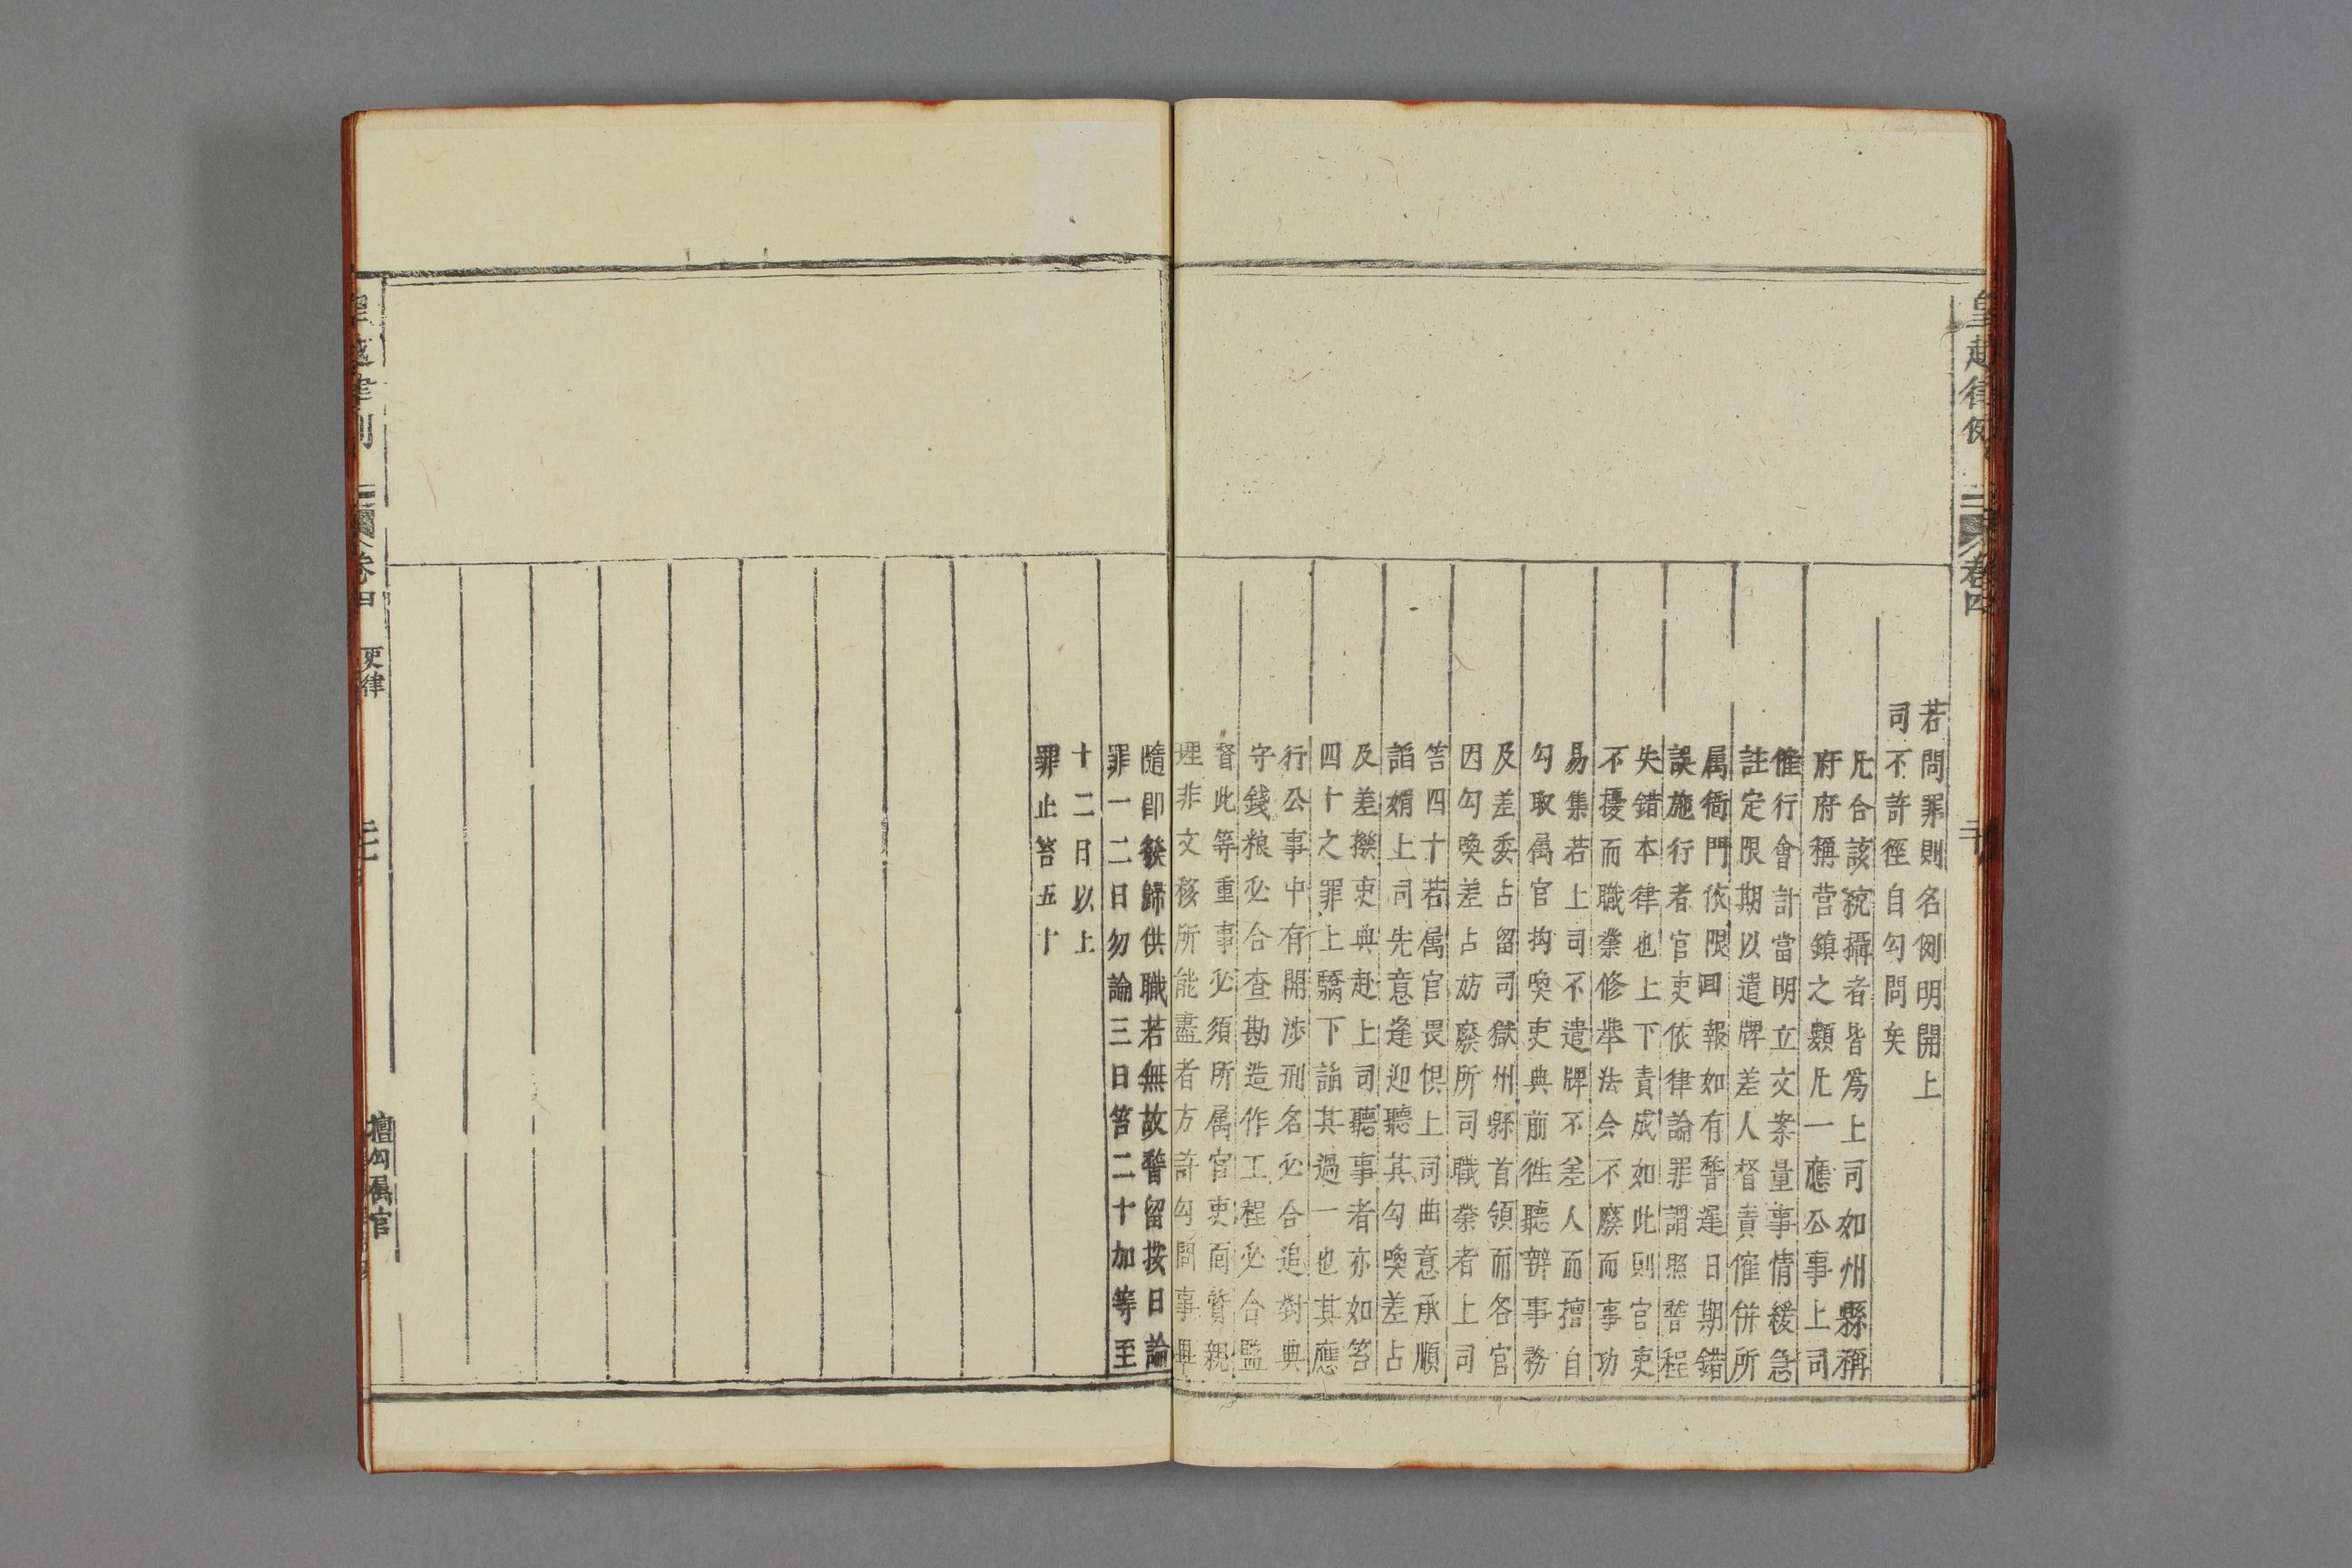 皇越律例
卷四
若問罪則名例明開上
司不許徑自勾問矣
凡合該統攝者皆爲上司如州縣稱
府府稱营鎮之類凡一應公事上司
催行會計當明立文案量事情緩急
註定限期以遣牌差人督責催併所
属衙門依限回報如有誓遲日期錯
誤施行者官吏依律論罪謂照誓程
失錯本律也上下責成如此則官吏
不擾而職業修舉法令不廢而事功
易集若上司不遣牌不差人而擅自
勾取属官拘喚吏典前徃聽辦事務
及差委占留司獄州縣首領而各官
因勾喚差占妨廢所司職業者上司
笞四十若属官畏惧上司曲意承順
謟媚上司先意逢迎聽其勾喚差占
及差撥吏典赴上司聽事者亦如笞
四十之罪上驕下諂其過一也其應
行公事中有開涉刑名必合追對典
守錢粮必合查勘造作工程必合監
督此等重事必須所属官吏面質親
理非文移所能盡者方許勾問事畢
隨即發歸供職若無故誓留按日論
罪一二日勿論三日笞二十加等至
十二日以上
罪止笞五十
卷四
吏律
擅勾属官